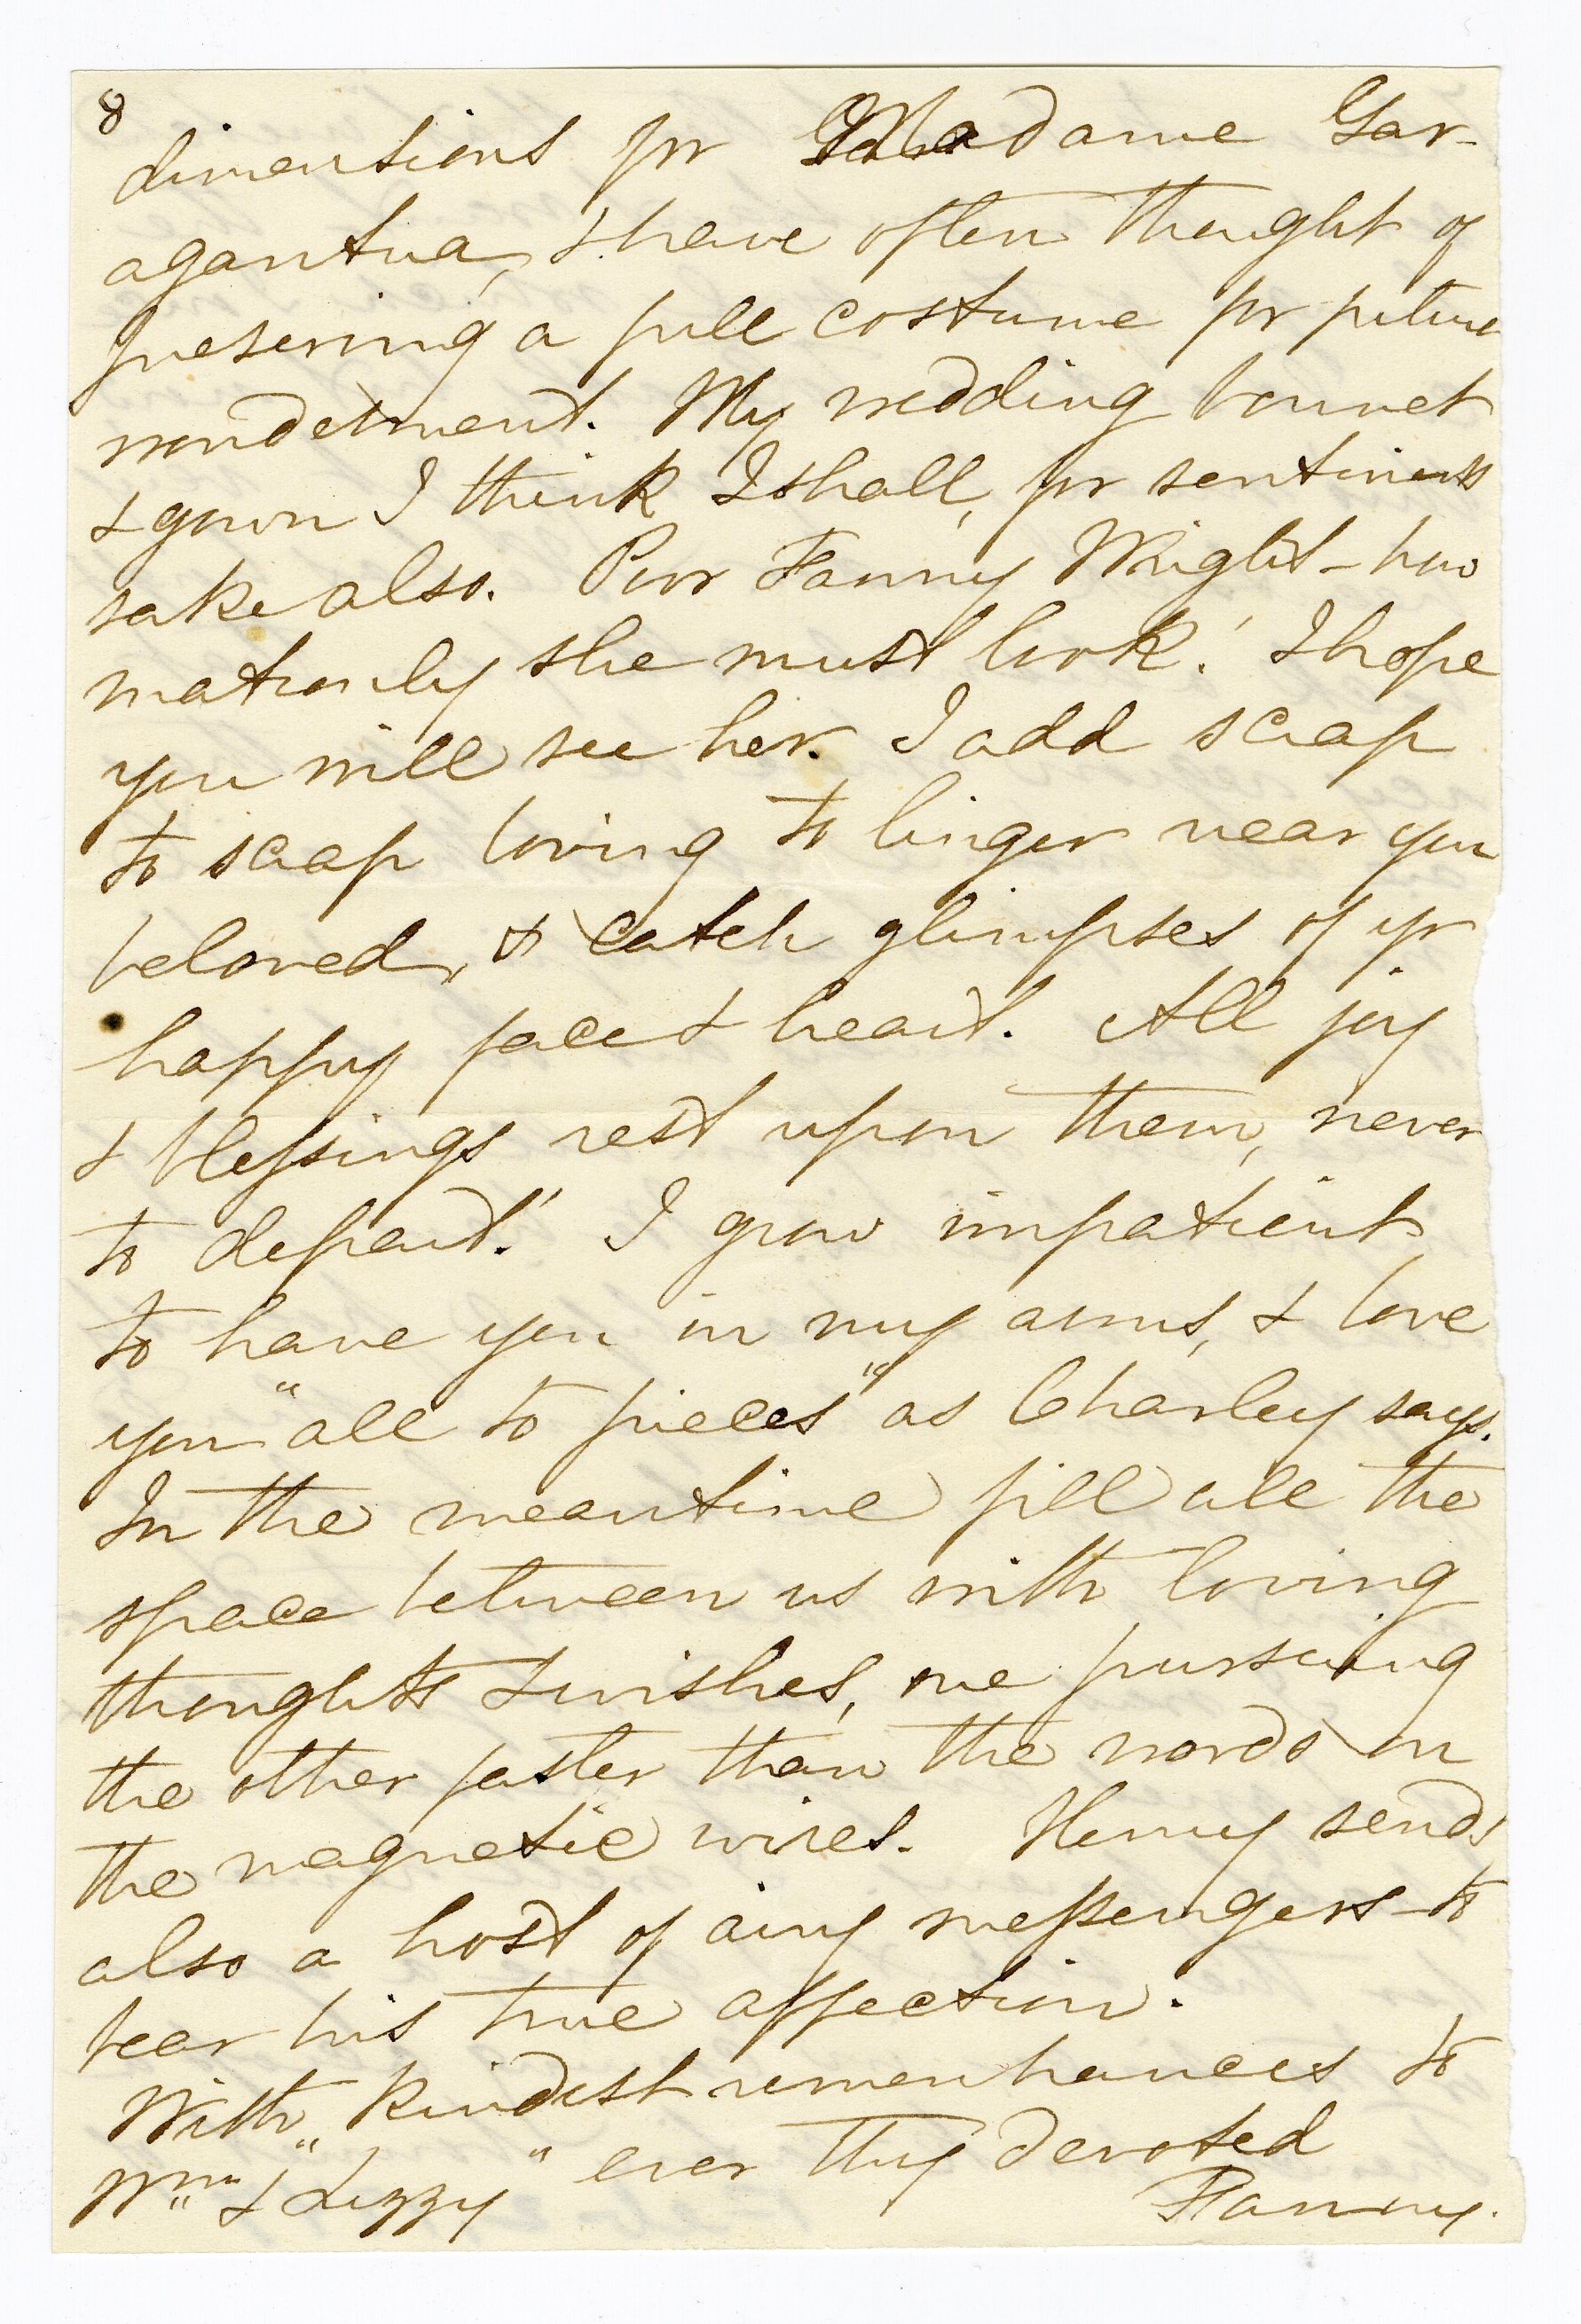 8
dimensions for Madame Gar-
agantua, I have often thought of
preserving a full costume for future
wonderment. My wedding bonnet
& gown I think I shall, for sentiments
sake also. Poor Fanny Wright – how
matronly she must look! I hope
you will see her. I add scrap
to scrap loving to linger near you
beloved, & catch glimpses of yr
happy face & heart. All joy
& blessings rest upon them, never
to depart! I grow impatient
to have you in my arms, & love
you "all to pieces" as Charley says.
In the meantime fill all the
space between us with loving
thoughts & wishes, one pursuing
the other faster than the words on
the magnetic wires. Henry sends
also a host of airy messengers – to
bear his true affection.
With kindest remembrances to
Wm & "Lizzy" ever thy devoted
Fanny.